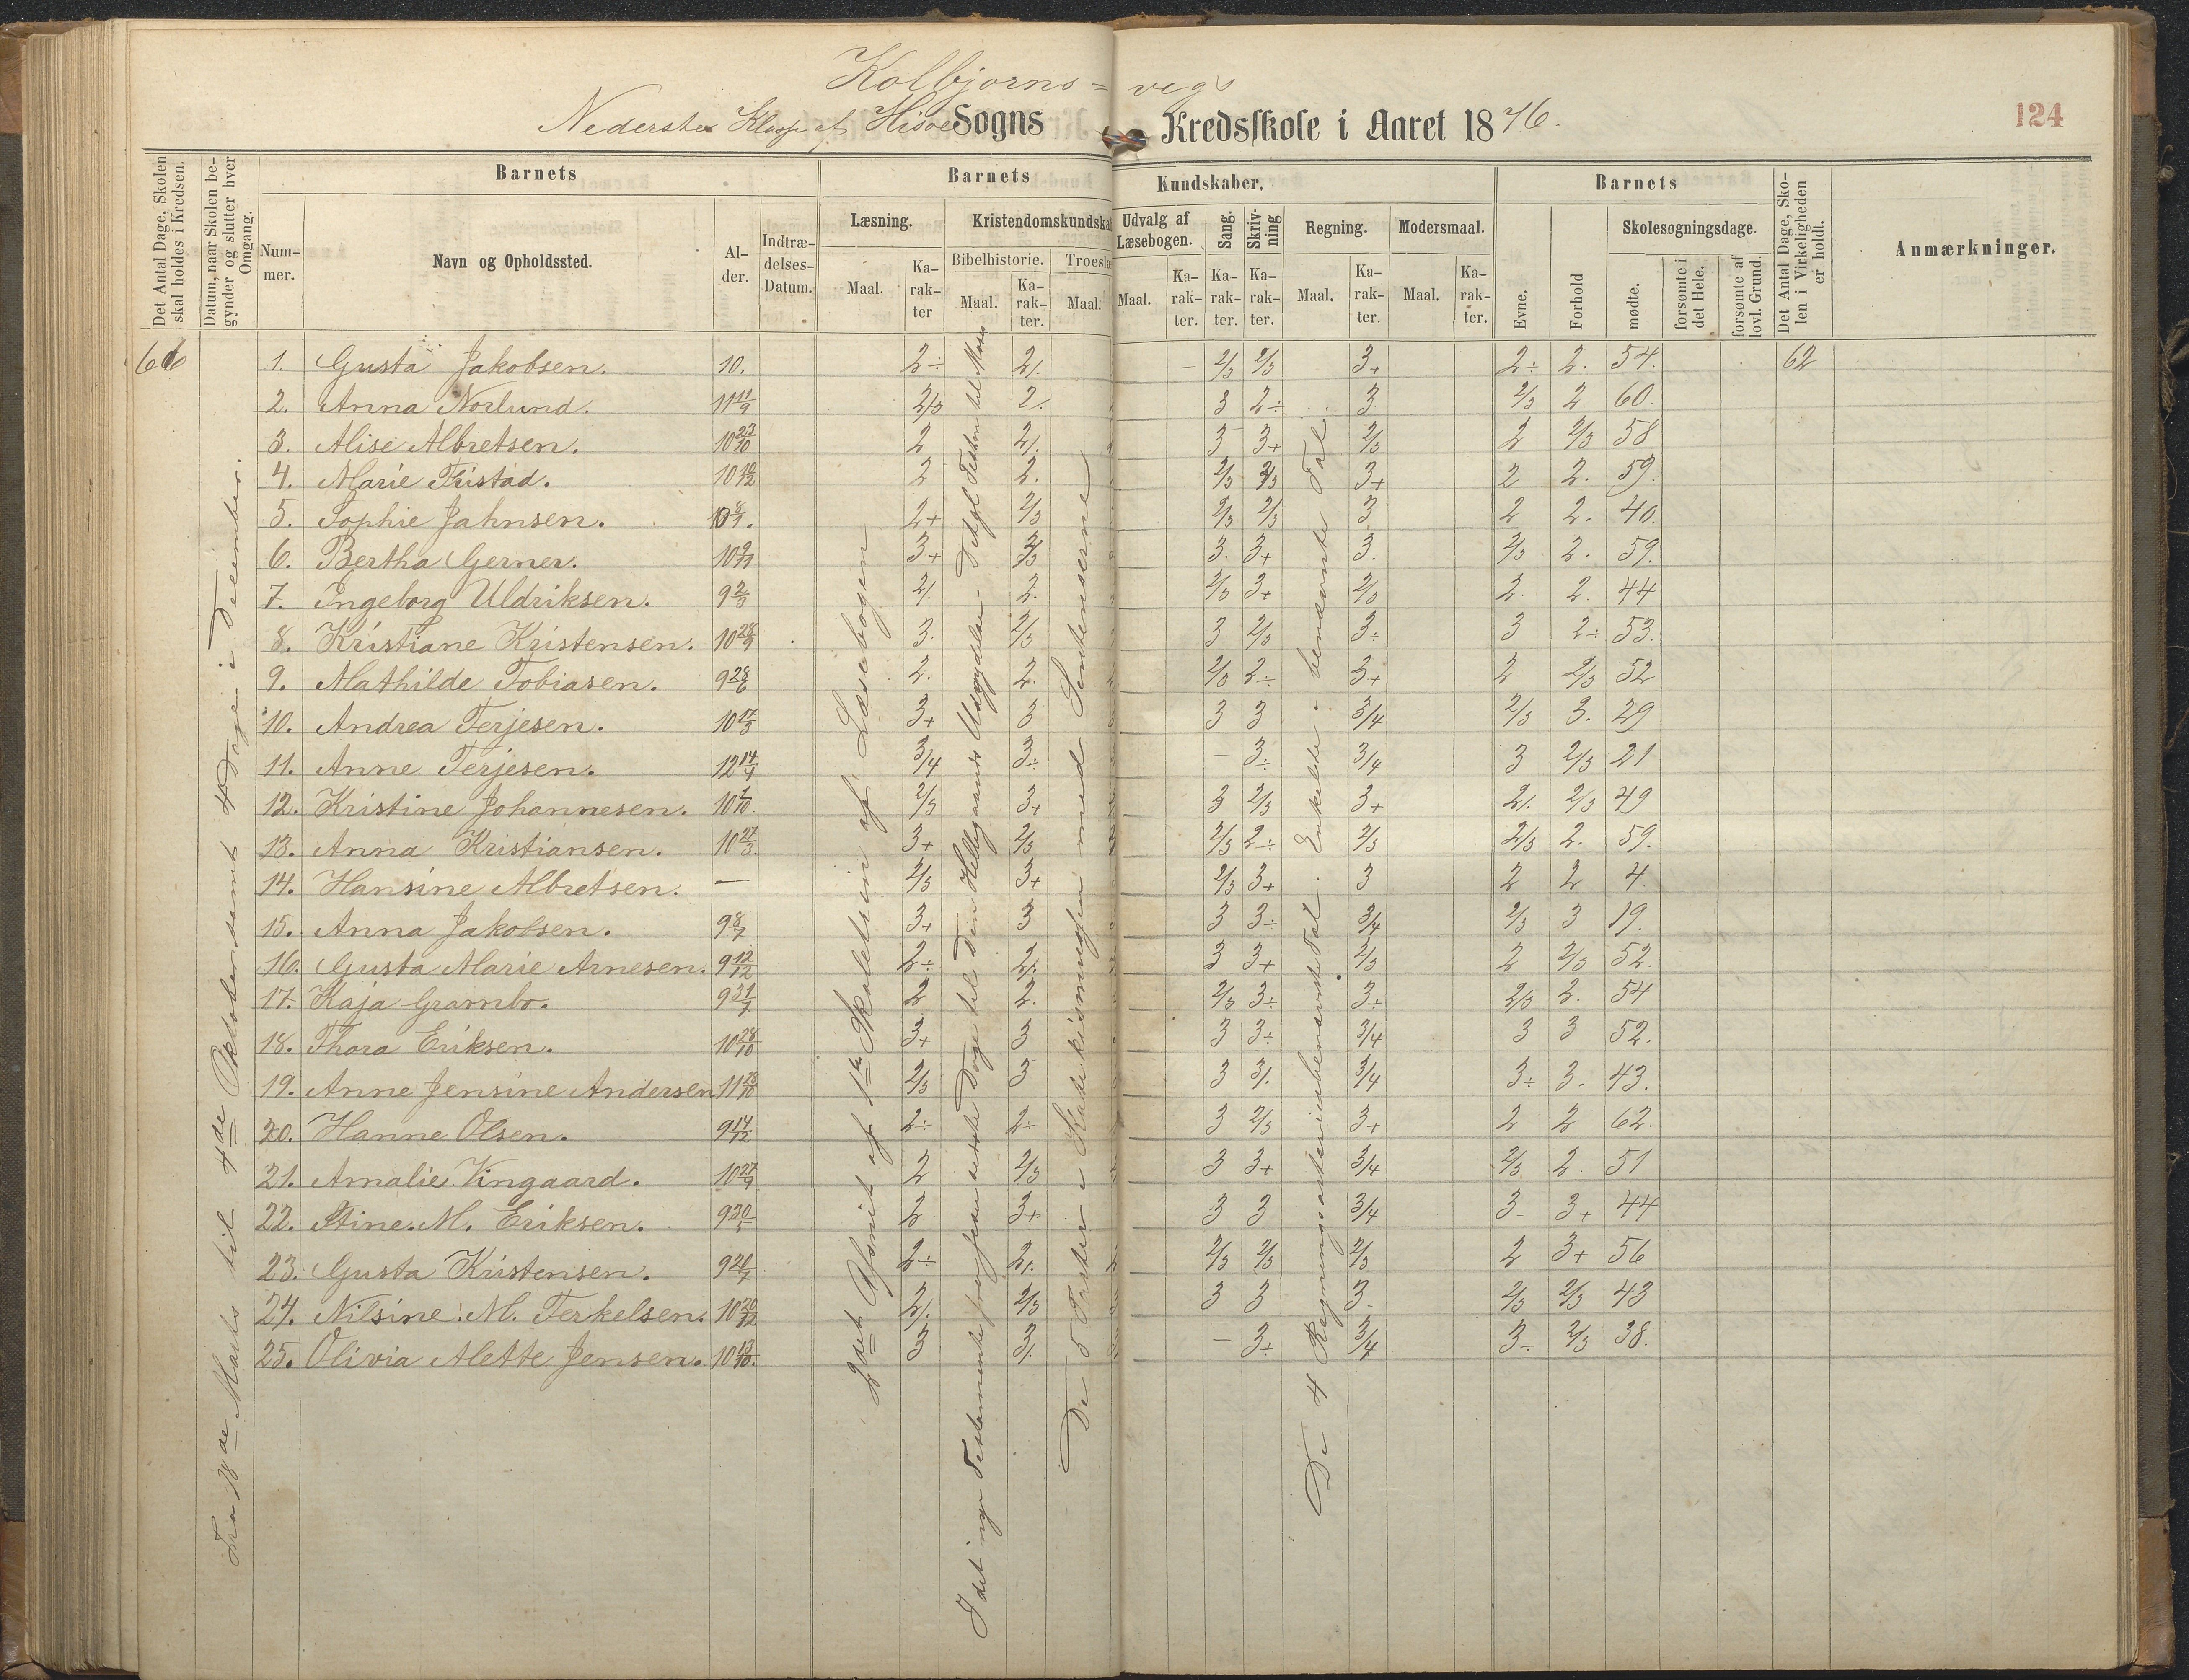 Kolbjorns = vegs
Nederste Klasse af Hisøe Sogns Kredsskole i Aaret 1876.
124
Det Antal Dage, Skolen skal holdes i Kredsen.
Datum, naar Skolen begynder og slutter hver Omgang.
Barnets
Nummer.
Navn og Opholdssted.
Alder.
Indtrædelses-Datum.
Barnets Kundskaber.
Læsning.
Maal.
Karakter
Kristendomskundska
Bibelhistorie.
Maal.
Karakter.
Troeslæ
Maal.
Udvalg af Læsebogen.
Maal.
Karakter.
Sang.
Karakter.
Skrivning
Karakter.
Regning.
Maal.
Karakter.
Modersmaal.
Maal.
Karakter.
Barnets
Evne.
Forhold
Skolesøgningsdage.
mødte.
forsømte i det Hele.
forsømte af lovl. Grund.
Det Antal Dage, Skolen i Virkeligheden er holdt.
Anmærkninger.
1. Gusta Jakobsen. 10. 2÷ 2/. – 2/3 2/3 3+ 2÷ 2. 54. 62
2. Anna Norlund. 11 11/9 2/3 2/. 3 2÷ 3 2/3 2 60.
3. Alise Albretsen. 10 23/10 2 2/. 3 3+ 2/3 2 2/3 58
4. Marie Fristad. 2 2. 2/3 2/3 3+ 2 2. 59.
5. Sophie Jahnsen. 2+ 2/3 2/3 2/3 3 2 2. 40.
6. Bertha Gerner. 3+ 2/3 3. 3+ 3. 2/3 2. 59.
7. Ingeborg Uldriksen. 9 2/3 2/. 2. 2/3 3+ 2/3 2. 2. 44
8. Kristiane Kristensen. 10 28/9 3. 2/3 3 2/3 3÷ 3 2÷ 53.
9. Mathilde Tobiasen. 9 28/6 2. 2. 2/3 2÷ 3+ 2 2/3 52
10. Andrea Terjesen. 10 17/3 3+ 3 3 3 3/4 2/3 3. 29
11. Anne Terjesen. 12 14/4 3/4 3÷ – 3÷ 3/4 3 2/3 21
12. Kristine Johannesen. 10 1/10 2/3 3+ 3 2/3 3+ 2/. 2/3 49
13. Anna Kristiansen. 10 27/3 3+ 2/3 2/3 2÷ 2/3 2/3 2. 59.
14. Hansine Albretsen. — 2/3 3+ 2/3 3+ 3 2 2 4
15. Anna Jakobsen. 9 8/7 3+ 3 3 3÷ 3/4 2/3 3 19.
16. Gusta Marie Arnesen. 9 12/12 2÷ 2/. 3 3+ 2/3 2 2/3 52.
17. Kaja Grambo. 9 31/7 2 2. 2/3 3÷ 3÷ 2/3 2. 54
18. Thora Eriksen. 10 28/10 3+ 3 3 3÷ 3/4 3 3 52.
19. Anne Jensine Andersen 11 28/10 2/3 3 3 3/. 3/4 3÷ 3. 43.
20. Hanne Olsen. 9 14/12 2÷ 2÷ 3 2/3 3+ 2 2 62.
21. Amalie Vingaard. 10 27/9 2 2/3 3 3+ 3/4 2/3 2. 51
22. Stine. M. Eriksen. 2 3+ 3 3 3/4 3- 3+ 44
23. Gusta Kristensen. 9 26/7 2÷ 2/. 2/3 2/3 2/3 2 3+ 56
24. Nilsine. M. Terkelsen. 10 20/12 2/. 2/3 3 3 3. 2/3 2/3 43
25. Olivia Alette Jensen. 10 13/10. 3 3/. – 3÷ 3/4 3÷ 2/3 38.
Fra 18de Marts til 4de Oktober samt 4 Dage i December.
2det Afsnit af 1ste Skoletrin af Læsebogen
De 5 Parter i Katekismusen med Sentenserne
De 4 Regningsarter i ubenævnte Tal. Enkelte i benævnte Tal.